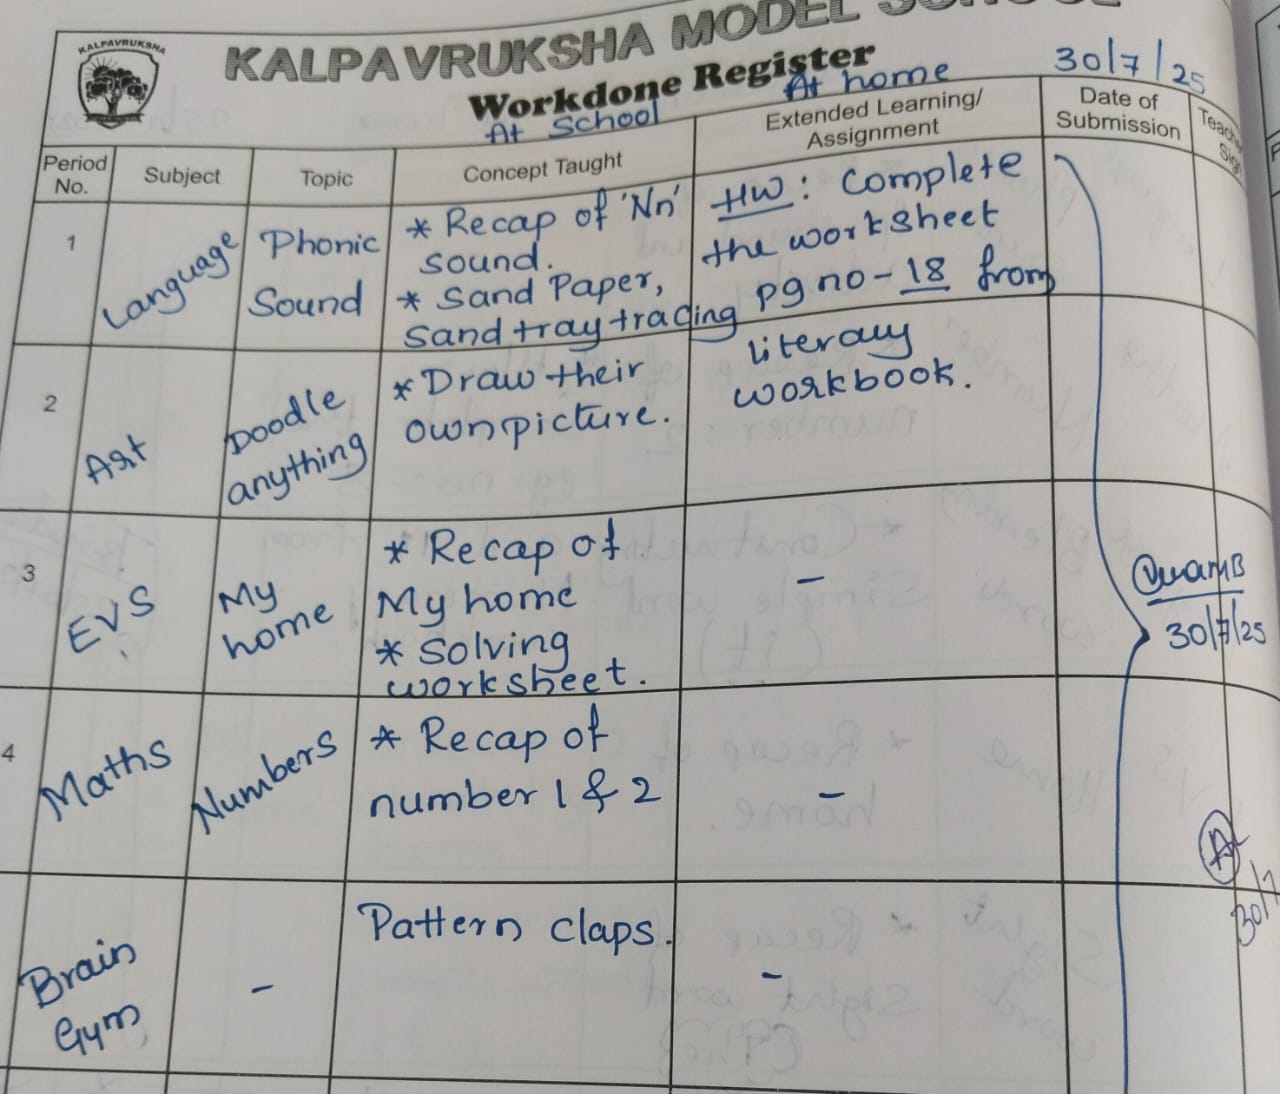 KALPAVRUKSHA
KALPAVRUKSHA MODEL SCHOOL
Workdone Register
30/7/25
At School
At home
Period No.
Subject
Topic
Concept Taught
Extended Learning/
Assignment
Date of
Submission
1
Language
Phonic
Sound
* Recap of 'Nn'
sound.
* Sand Paper,
Sand tray tracing
HW: Complete
the worksheet
pg no - 18 from
literacy
workbook.
2
Art
Doodle
anything
* Draw their
own picture.
3
EVS
My
home
* Recap of
My home
* Solving
worksheet.
-
30/7/25
4
Maths
Numbers
* Recap of
number 1 & 2
-
A
30/7
Brain
Gym
-
Pattern claps.
-